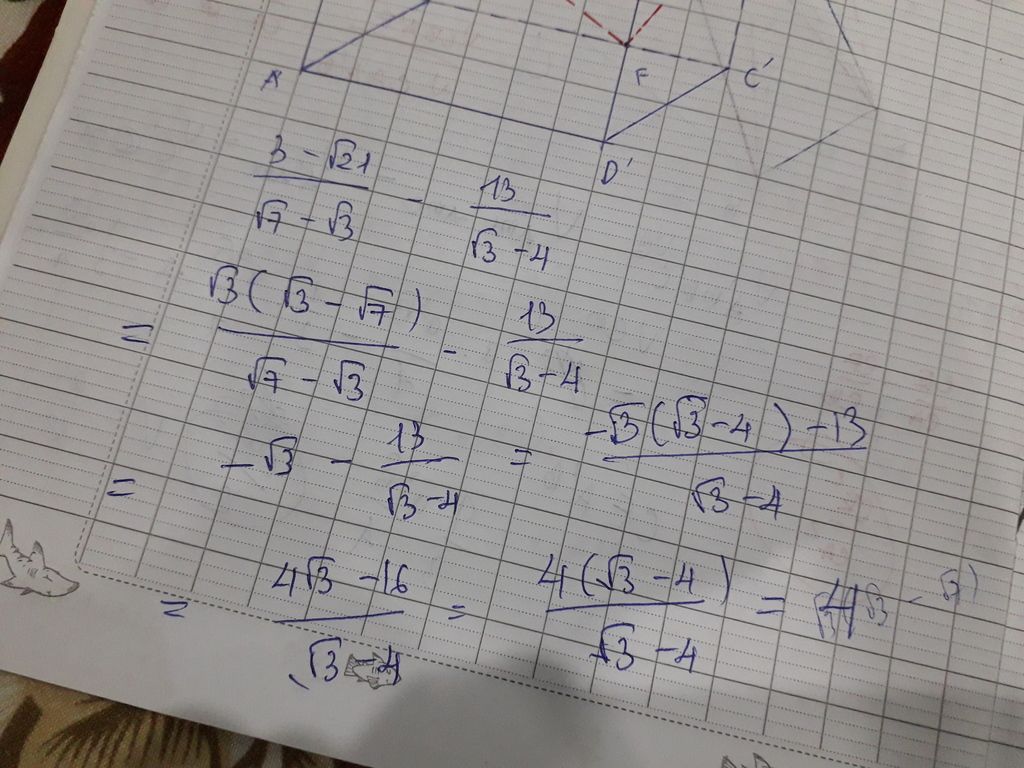 A'
F
C'
D'
3 - √21 / √7 - √3 - 13 / √3 - 4
= √3 ( √3 - √7 ) / √7 - √3 - 13 / √3 - 4
= - √3 - 13 / √3 - 4 = -√3 (√3 - 4 ) - 13 / √3 - 4
= 4√3 - 16 / √3 - 4 = 4 (√3 - 4 ) / √3 - 4 = 4